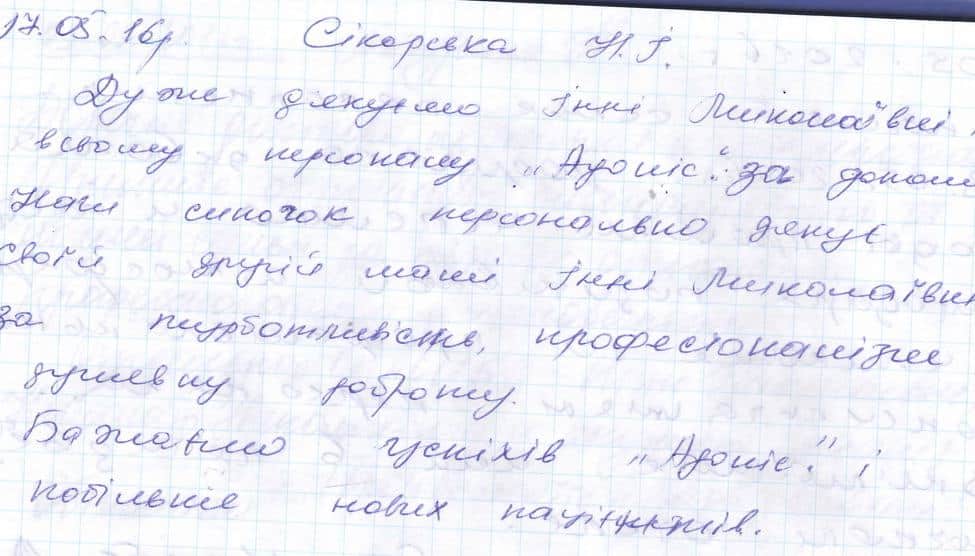 17.05.16р. Сікорська Н.І.
Дуже дякуємо Інні Миколаївні
всьому персоналу „Адоніс". за допом
Наш синочок персонально дякує
своїй другій мамі Інні Миколаївні
за турботливість, професіоналізм
душевну доброту.
Бажаємо успіхів „Адоніс". і
побільше нових пацієнтів.